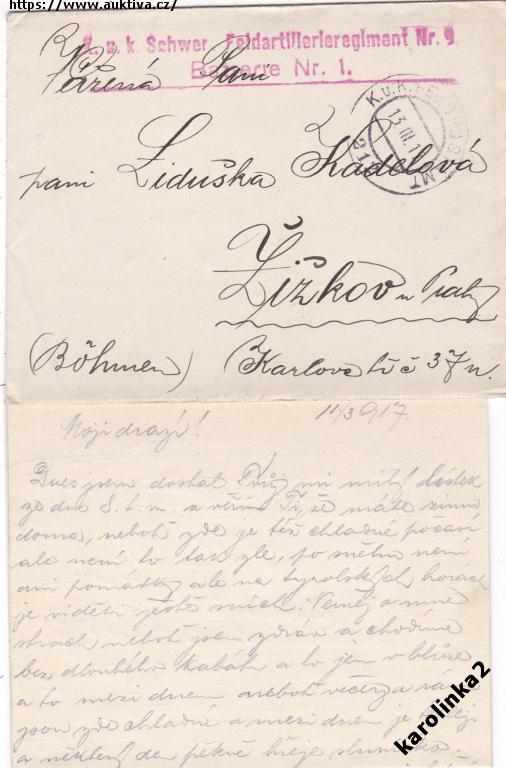 https://www.auktiva.cz/
K. u. k. Schwer. Feldartillerieregiment Nr. 9
Batterie Nr. 1.
Vážená Paní
K.u.K. FELDPOSTAMT
13 III. 1
211
paní Liduška Kadelová
Žižkov u Prahy
(Böhmen) Karlova tř č 37 n.
11/3 917.
Moji drazí!
Dnes jsem dostal Tvůj mi milý lístek
ze dne 8. t. m. a věřím Ti, že máte zimu
doma, neboť zde je též chladné počasí
ale není to tak zle, po sněhu není
ani památky ale na tyrolských horách
je viděti ještě sních. Neměj o mne
strach neboť jsem zdráv a chodíme
bez dlouhého kabátu a to jen v blůze
a to mezi dnem neboť večer a ráno
jsou zde chladné a mezi dnem je
a některý den pěkně hřeje slunéčko.
karolinka2